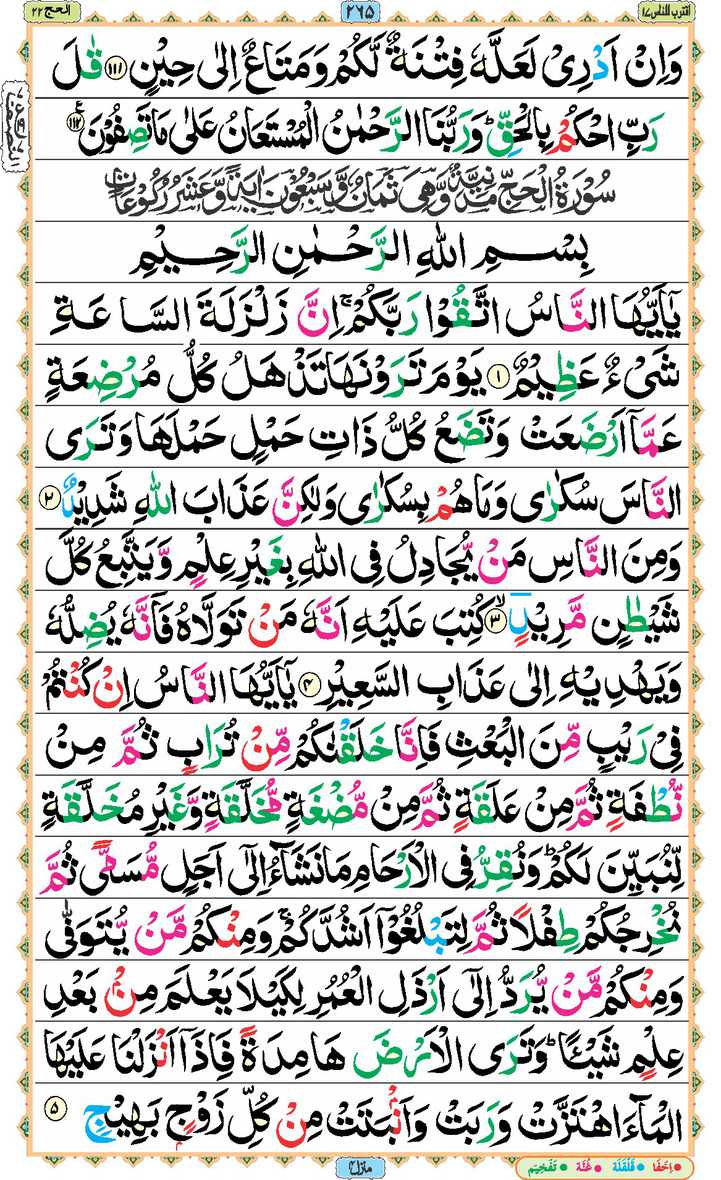 اقترب للناس ۱۷
۲۶۵
الحج ۲۲
وَاِنْ اَدْرِىْ لَعَلَّهٗ فِتْنَةٌ لَّكُمْ وَمَتَاعٌ اِلٰى حِيْنٍ ۝۱۱۱ قٰلَ
رَبِّ احْكُمْ بِالْحَقِّ ؕ وَرَبُّنَا الرَّحْمٰنُ الْمُسْتَعَانُ عَلٰى مَا تَصِفُوْنَ ۝۱۱۲
سُوْرَةُ الْحَجِّ مَدَنِيَّةٌ وَّهِىَ ثَمَانٌ وَّسَبْعُوْنَ اٰيَةً وَّعَشْرُ رُكُوْعَاتٍ
بِسْمِ اللّٰهِ الرَّحْمٰنِ الرَّحِيْمِ
يٰۤاَيُّهَا النَّاسُ اتَّقُوْا رَبَّكُمْ ۚ اِنَّ زَلْزَلَةَ السَّاعَةِ
شَىْءٌ عَظِيْمٌ ۝۱ يَوْمَ تَرَوْنَهَا تَذْهَلُ كُلُّ مُرْضِعَةٍ
عَمَّاۤ اَرْضَعَتْ وَتَضَعُ كُلُّ ذَاتِ حَمْلٍ حَمْلَهَا وَتَرَى
النَّاسَ سُكٰرٰى وَمَا هُمْ بِسُكٰرٰى وَلٰكِنَّ عَذَابَ اللّٰهِ شَدِيْدٌ ۝۲
وَمِنَ النَّاسِ مَنْ يُّجَادِلُ فِى اللّٰهِ بِغَيْرِ عِلْمٍ وَّيَتَّبِعُ كُلَّ
شَيْطٰنٍ مَّرِيْدٍ ۝۳ۙ كُتِبَ عَلَيْهِ اَنَّهٗ مَنْ تَوَلَّاهُ فَاَنَّهٗ يُضِلُّهٗ
وَيَهْدِيْهِ اِلٰى عَذَابِ السَّعِيْرِ ۝۴ يٰۤاَيُّهَا النَّاسُ اِنْ كُنْتُمْ
فِىْ رَيْبٍ مِّنَ الْبَعْثِ فَاِنَّا خَلَقْنٰكُمْ مِّنْ تُرَابٍ ثُمَّ مِنْ
نُّطْفَةٍ ثُمَّ مِنْ عَلَقَةٍ ثُمَّ مِنْ مُّضْغَةٍ مُّخَلَّقَةٍ وَّغَيْرِ مُخَلَّقَةٍ
لِّنُبَيِّنَ لَكُمْ ؕ وَنُقِرُّ فِى الْاَرْحَامِ مَا نَشَآءُ اِلٰۤى اَجَلٍ مُّسَمًّى ثُمَّ
نُخْرِجُكُمْ طِفْلًا ثُمَّ لِتَبْلُغُوْۤا اَشُدَّكُمْ ۚ وَمِنْكُمْ مَّنْ يُّتَوَفّٰى
وَمِنْكُمْ مَّنْ يُّرَدُّ اِلٰۤى اَرْذَلِ الْعُمُرِ لِكَيْلَا يَعْلَمَ مِنْۢ بَعْدِ
عِلْمٍ شَيْـًٔا ؕ وَتَرَى الْاَرْضَ هَامِدَةً فَاِذَاۤ اَنْزَلْنَا عَلَيْهَا
الْمَآءَ اهْتَزَّتْ وَرَبَتْ وَاَنْۢبَتَتْ مِنْ كُلِّ زَوْجٍۭ بَهِيْجٍ ۝۵
منزل ۴
اِخفَا قَلْقَلَة غُنَّه تَفْخِيْم